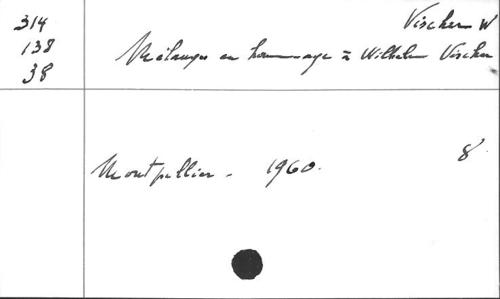 314
138
38
Vischer W
Mélanges en hommage à Wilhelm Vischer
Montpellier - 1960.
8